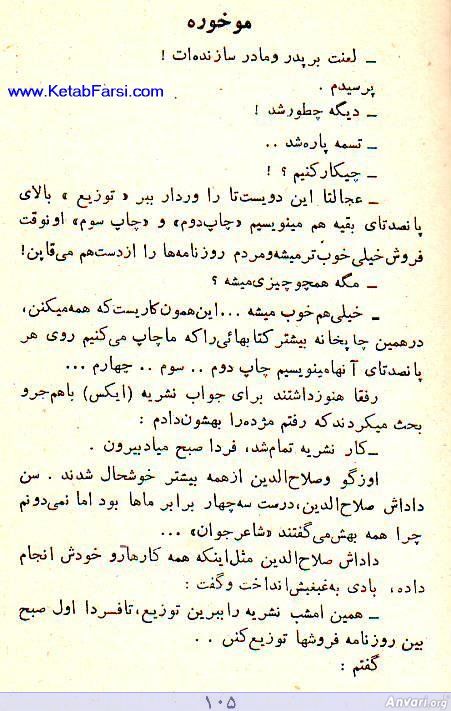 موخوره
ـ لعنت بر پدر ومادر سازنده‌ات !
www.KetabFarsi.com
پرسیدم .
ـ دیگه چطورشد !
ـ تسمه پاره‌شد ..
ـ چیکارکنیم ؟ !
ـ عجالتا این دویست‌تا را وردار ببر « توزیع » بالای
پانصدتای بقیه هم مینویسیم «چاپ‌دوم» و «چاپ سوم» اونوقت
فروش‌خیلی‌خوب‌ترمیشه‌ومردم روزنامه‌ها را ازدست‌هم می‌قاپن!
ـ مگه همچوچیزی‌میشه ؟
ـ خیلی‌هم‌خوب میشه ...این‌همون‌کاریست‌که همه‌میکنن،
درهمین چاپخانه بیشتر کتابهائی‌راکه ماچاپ می‌کنیم روی هر
پانصدتای آنهامینویسیم چاپ دوم .. سوم .. چهارم ...
رفقا هنوزداشتند برای جواب نشریه (ایکس) باهم‌جرو
بحث میکردندکه رفتم مژده‌را بهشون‌دادم :
ـ کار نشریه تمام‌شد، فردا صبح میادبیرون .
اوزگو وصلاح‌الدین ازهمه بیشتر خوشحال شدند . سن
داداش صلاح‌الدین،درست سه‌چهار برابر ماها بود اما نمی‌دونم
چرا همه بهش‌می‌گفتند «شاعرجوان» ...
داداش صلاح‌الدین مثل‌اینکه همه کارهارو خودش انجام
داده، بادی به‌غبغبش‌انداخت وگفت :
ـ همین امشب نشریه راببرین توزیع،تافـردا اول صبح
بین روزنامه فروشها توزیع‌کنن . .
گفتم :
۱۰۵
Anvari.org